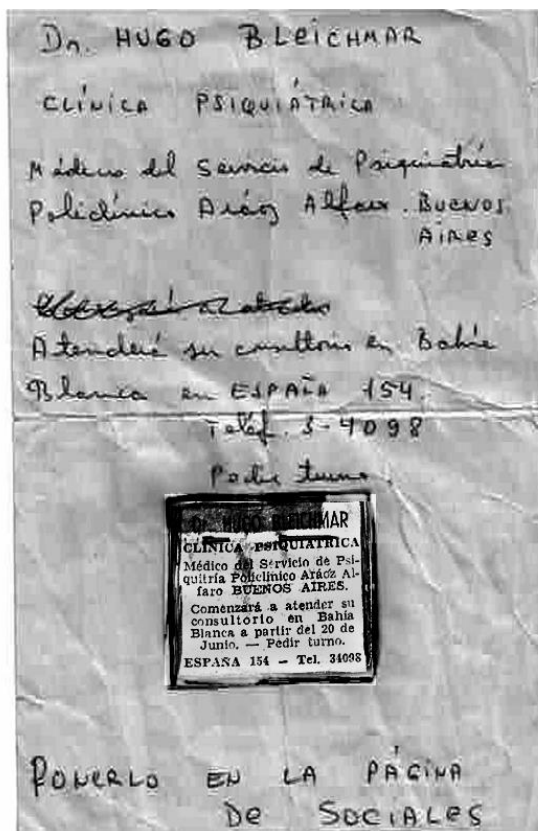 Dr. HUGO BLEICHMAR
CLÍNICA PSIQUIÁTRICA
Médico del Servicio de Psiquiatría
Policlínico Aráoz Alfaro. BUENOS
AIRES
Atenderá su consultorio en Bahía
Blanca en ESPAÑA 154.
Teléf. 3-4098
Pedir turno
Dr. HUGO BLEICHMAR
CLINICA PSIQUIATRICA
Médico del Servicio de Psi-
quitría Policlínico Aráoz Al-
faro BUENOS AIRES.
Comenzará a atender su
consultorio en Bahía
Blanca a partir del 20 de
Junio. — Pedir turno.
ESPAÑA 154 — Tel. 34098
PONERLO EN LA PÁGINA
DE SOCIALES